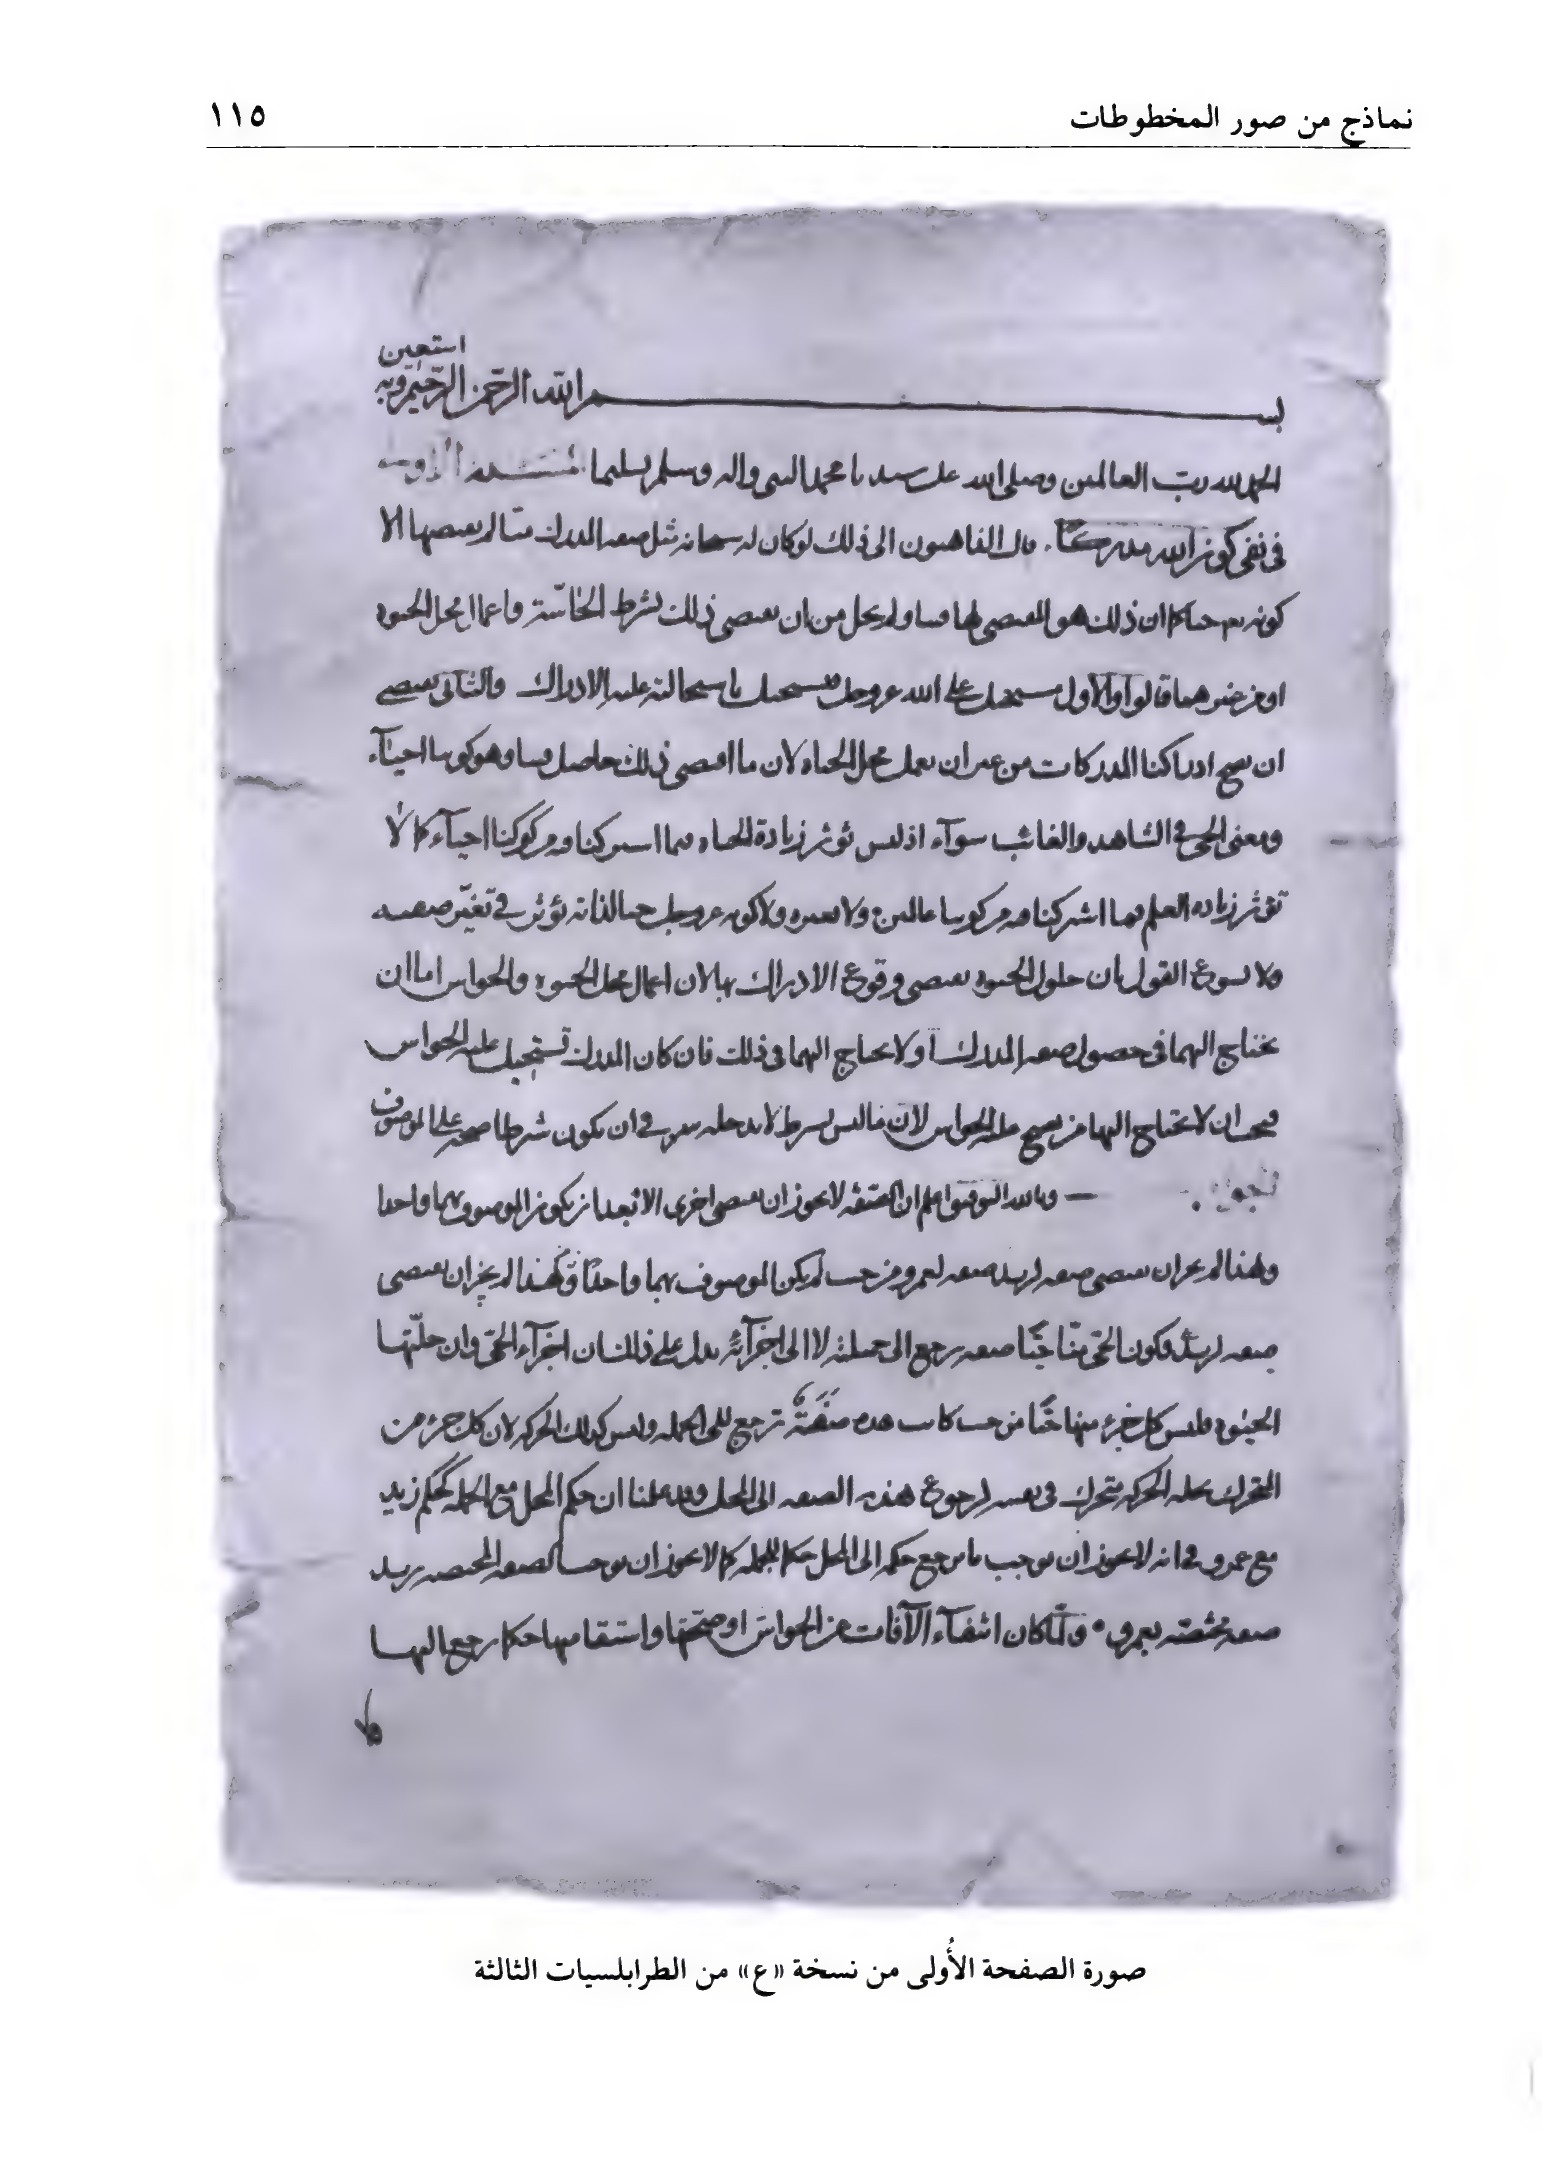 نماذج من صور المخطوطات ١١٥
استعين
بسم الله الرحمن الرحيم وبه
الحمد لله ربّ العالمين وصلى الله على سيدنا محمد النبي واله وسلم تسليما المسئلة الاولى
في نفي كون الله مدركًا. قال الذاهبون الى ذلك لو كان له سبحانه مثل صفة المدرك منّا لم يقتضها الا
كونه حيا كما ان ذلك هو المقتضي لها فينا ولم يخل من ان يقتضي ذلك بشرط الحاسّة واعمال محل الحيوة
او من غيرهما قالوا والاول مستحيل على الله عز وجل فيستحيل باستحالته عليه الادراك والثاني يقتضي
ان يصح ادراكنا المدركات من غير ان نعمل محل الحياه لان ما اقتضى ذلك حاصل فينا وهو كوننا احيآء
ومعنى الحي في الشاهد والغائب سوآء اذ ليس تؤثر زيادة الحياه فيما اشتركنا فيه من كوننا احيآء كما لا
تؤثر زياده العلم فيما اشتركنا فيه من كوننا عالمين ولا تغيره ولا كونه عز وجل حيا لذاته يؤثر في تغيّر صفته
ولا يسوغ القول بان حلول الحيوه يقتضي وقوع الادراك بها لان اعمال محل الحيوه والحواس اما ان
يحتاج اليهما في حصول صفه المدرك او لا يحتاج اليهما في ذلك فان كان المدرك تستحيل عليه الحواس
فيجب ان لا يحتاج اليها من يصح عليه الحواس لان ما ليس بشرط لا يدخله في ان يكون شرطا صحته على الموصوف
الجواب. وبالله التوفيق اعلم ان الصفه لا يجوز ان تقتضي اخرى الا بعد ان يكون الموصوف بهما واحدا
ولهذا لم يجز ان تقتضي صفه لزيد صفه لعمرو من حيث لم يكن الموصوف بهما واحدًا ولهذا لم يجز ان تقتضي
صفه لزيد وكون الحي منّا حيًّا صفه يرجع الى جملته لا الى اجزآئه يدل على ذلك ان اجزآء الحي وان حلّتها
الحيوه فليس كل جزء منها حيًا من حيث كانت هذه صفةً ترجع الى الجمله وليس كذلك الحركه لان كل جزء من
المتحرك تحله الحركه متحرك في نفسه لرجوع هذه الصفه الى المحل وقد علمنا ان حكم المحل مع الجمله كحكم زيد
مع عمرو في انه لا يجوز ان يوجب ما يرجع حكمه الى المحل حكما للجمله كما لا يجوز ان توجب الصفه المختصه بزيد
صفه مختصّه بعمرو. ولمّا كان انتفآء الآفات عن الحواس او صحتها واستقامتها حكما يرجع اليها
صورة الصفحة الأُولى من نسخة «ع» من الطرابلسيات الثالثة